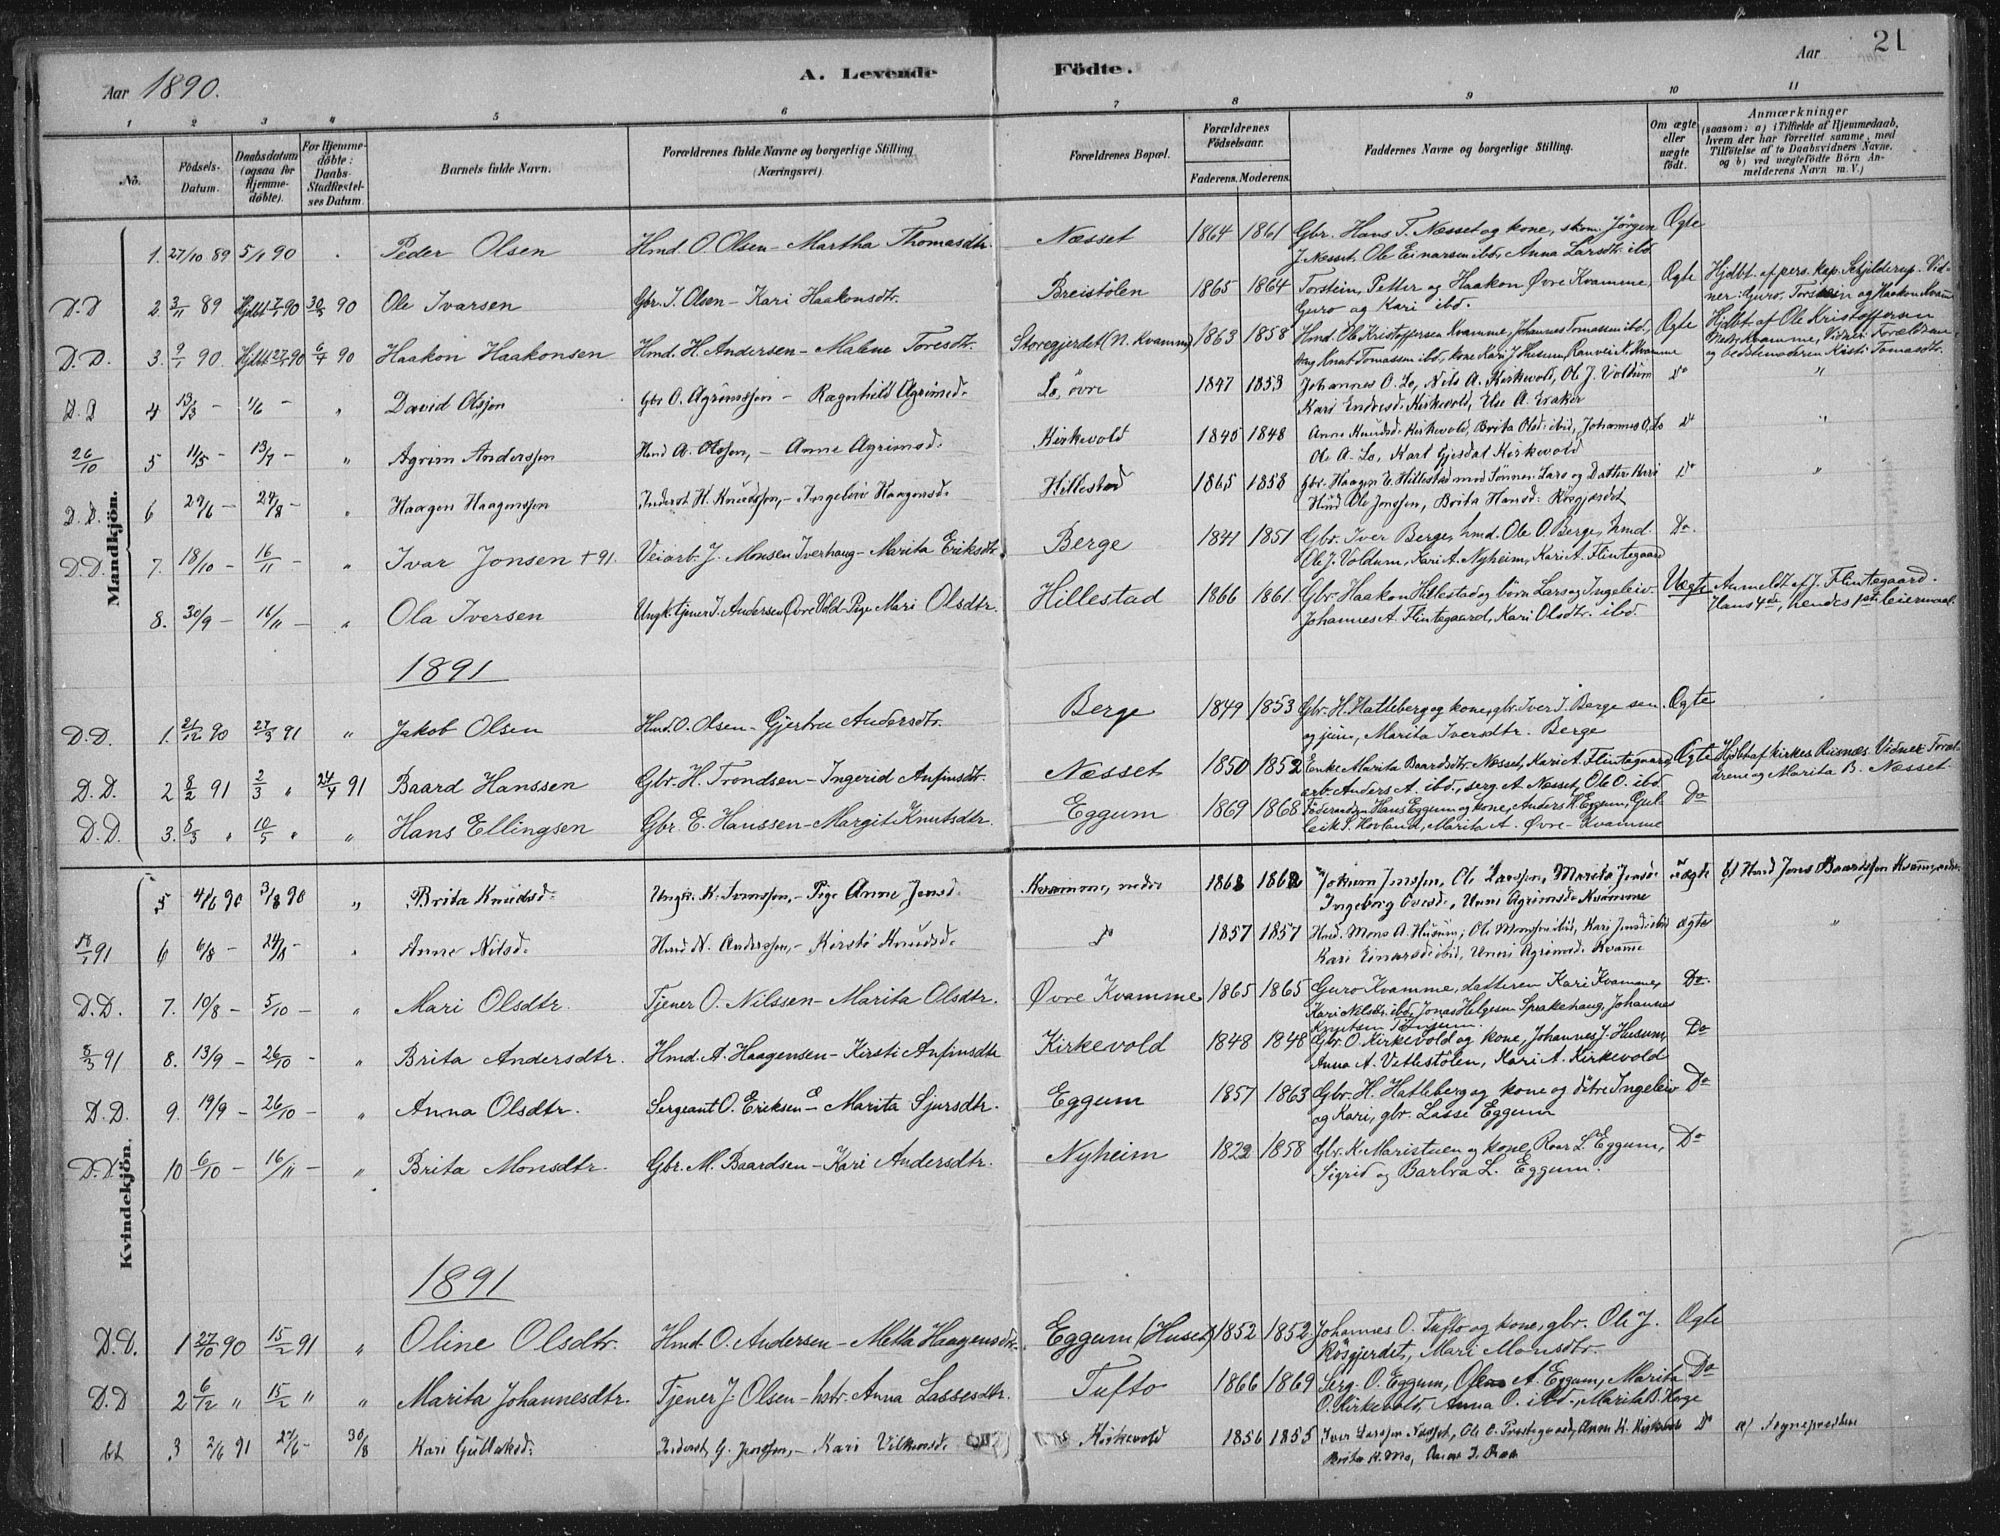 21
Aar 1890.
A. Levende Födte.
Aar
1 2 3 4 5 6 7 8 9 10 11
No.
Födsels-
Datum.
Daabsdatum
(ogsaa for
Hjemme-
døbte).
For Hjemme-
døbte:
Daabs-
Stadfæstel-
ses Datum.
Barnets fulde Navn.
Forældrenes fulde Navne og borgerlige Stilling
(Næringsvei).
Forældrenes Bopæl.
Forældrenes
Fødselsaar.
Faderens. Moderens.
Faddernes Navne og borgerlige Stilling.
Om ægte
eller
uægte
født.
Anmærkninger
(saasom: a) i Tilfælde af Hjemmedaab,
hvem der har forrettet samme, med
Tilföielse af to Daabsvidners Navne,
og b) ved uægtefödte Börn An-
melderens Navn m. V.)
Mandkjön.
1. 27/10 89 5/1 90 Peder Olsen Hmd. O. Olsen - Martha Thomasdtr. Næsset 1864 1861 Gbr. Hans T. Næsset og kone, skom. Jørgen Ægte
J. Næsset, Ole Einarsen ibd., Anna Larsdtr. ibd.
D.D 2. 3/11 89 Hjdbt 7/1 90 30/3 90 Ole Ivarsen Gbr. I. Olsen - Kari Haakonsdtr. Breistölen 1865 1864 Torstein, Petter og Haakon Øvre Kvamme, Ægte Hjdbt. af pers. kap. Schjelderup. Vid-
Guro og Kari ibd. ner: Guro, Torstein og Haakon Kvamme
D.D. 3. 9/1 90 Hjdbt 27/1 90 6/4 90 Haakon Haakonsen Hmd. H. Andersen - Malene Toresdtr. Storegjerdet (N. Kvamme) 1863 1858 Hmd. Ole Kristoffersen Kvamme, Johannes Tomassen ibd., Ægte Hjdbt. af Ole Kristoffersen
Knut Tomassen ibd., kone Kari J. Husum, Ranvei N. Kvamme Nedre Kvamme, Vidner: Forældrene
og bedstemoderen Kirsti Tomasdtr.
D.D 4 13/3 - 1/6 - " David Olsson Gbr O. Agrimssøn - Ragnhild Agrimsd. Lo, övre 1847 1853 Johannes O. Lo, Nils A. Kirkevold, Ole J. Voldum Do "
Kari Endresd. Kirkevold, Else A. Eraker
26/10 5 11/5 - 13/7 - " Agrim Anderssøn Hmd A. Olssøn, - Anne Agrimsd. Kirkevold 1845 1848 Anne Knudsd. Kirkevold, Brita Olsd. ibid, Johannes O. Lo Do "
Ole A. Lo, Karl Gjesdal Kirkevold
D.D. 6 29/6 - 24/8 - " Haagen Haagenssøn Inderst H. Knudssøn, - Ingeleiv Haagensd. Hillestad 1865 1858 Gbr. Haagen E. Hillestad med Sønnen Lars og Datter Kari Do "
Hmd Ole Jonssøn, Brita Hansd. Røsgjærdet
D.D. 7. 18/10 - 16/11 - " Ivar Jonsen † 91. Veiarb. J. Monsen Iverhaug - Marita Eriksdtr. Berge 1841 1851 Gbr. Iver Berge, hmd. Ole O. Berge, hmd. Do.
Ole J. Voldum, Kari A. Nyheim, Kari A. Flintegaard
8. 30/9 - 16/11 - " Ola Iversen Ungk. tjener I. Andersen Øvre Vold - Pige Mari Olsdtr. Hillestad 1866 1861 Gbr. Haakon Hillestad og börn Lars og Ingeleiv- Uægte Anmeldt af J. Flintegaard.
Johannes A. Flintegaard, Kari Olsdtr. ibd. Hans 4de, hendes 1ste leiermaal
1891
D.D. 1. 21/12 90 27/3 91 " Jakob Olsen Hmd. O. Olsen - Gjertru Andersdtr. Berge 1849 1853 Gbr. H. Hatleberg og kone, gbr. Iver I. Berge sen. Ægte
og jun., Marita Iversdtr. Berge
D.D. 2 8/2 91 2/3 " 24/4 91 Baard Hanssen Gbr. H. Trondsen - Ingerid Anfinsdtr. Næsset 1850 1852 Enke Marita Baardsdtr. Næsset, Kari A. Flintegaard Ægte Hjdbt af kirkes. Rusnæs. Vidner: Foræl-
arb. Anders A. ibd., serg. A. Næsset, Ole O. ibd. drene og Marita B. Næsset.
D.D. 3. 8/3 " 10/5 " " Hans Ellingsen Gbr. E. Hanssen - Margit Knutsdtr. Eggum 1869 1868 Föderaadsm. Hans Eggum og kone, Anders H. Eggum, Gul- Do
leik S. Hovland, Marita A. Øvre-Kvamme
Kvindekjön.
5 4/6 90 3/8 90 " Brita Knudsd. Ungk. K. Ivarssøn, - Pige Anne Jonsd. Kvamme, nedre 1868 1862 Jokum Jonssøn, Ole Larssøn, Marita Jonsd. uægte b) Hmd Jens Baardssøn Kvamme, nedre
Ingeborg Olesd., Unni Agrimsd. Kvamme
18/1 91 6 6/8 - 24/8 . Anne Nilsd. Hmd N. Anderssøn, - Kirsti Knudsd. Do 1857 1857 Hmd. Mons A. Husum, Ole Monssøn ibid, Kari Jonsd. ibid ægte "
Kari Einarsd. ibid, Unni Agrimsd. Kvamme
D.D. 7. 10/8 - 5/10 - " Mari Olsdtr. Tjener O. Nilssen - Marita Olsdtr. Øvre Kvamme 1865 1865 Guro Kvamme, datteren Kari Kvamme, Do.
Kari Nilsdtr. ibd., Jonas Helgesen Sprakehaug, Johannes
Knutsen Tønjum.
8/3 91 8. 13/9 - 26/10 - " Brita Andersdtr. Hmd. A. Haagensen - Kirsti Anfinsdtr Kirkevold 1848 1848 Gbr. O. Kirkevold og kone, Johannes J. Husum, Do
Anna A. Vetlestölen, Kari A. Kirkevold
D.D. 9. 19/9 - 26/10 - " Anna Olsdtr. Sergeant O. Eriksen E - Marita Sjursdtr. Eggum 1857 1863 Gbr. H. Hatleberg og kone og døtre Ingeleiv Do
og Kari, gbr. Lasse Eggum
D.D. 10 6/10 - 16/11 - " Brita Monsdtr. Gbr. M. Baardsen - Kari Andersdtr. Nyheim 1822 1858 Gbr. K. Maristuen og kone, Roar L. Eggum, Do
Sigrid og Barbra L. Eggum.
1891
D.D. 1 27/10 90 15/2 91 " Oline Olsdtr. Hmd. O. Andersen - Metta Haagensdtr. Eggum (Huset) 1852 1852 Johannes O. Tufto og kone, gbr. Ole J. Ægte
Røsgjerdet, Mari Monsdtr.
D.D 2 6/12 " 15/2 " " Marita Johannesdtr. Tjener J. Olsen - hstr. Anna Lassesdtr. Tufto 1866 1869 Serg. O. Eggum, A. Eggum, Marita Do
O. Kirkevold, Anna O. ibd., Marita B. Hage
3 2/6 91 27/6 - 30/8 Kari Gullaksd. Inderst G. Jonssøn, - Kari Vilhemsd. Kirkevold 1856 1855 Iver Larssøn Næsset, Ole O. Prestegaard, Anne K. Kirkevold Do a) Sognepresten
Brita K. Mo,